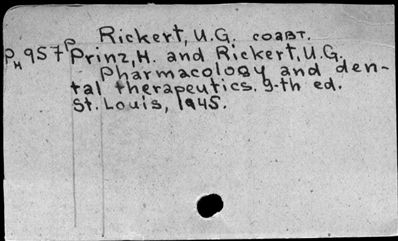 Rickert, U.G. соавт.
PH957P Prinz, H. and Rickert, U.G.
Pharmacology and den-
tal therapeutics. 9-th ed.
St. Louis, 1945.